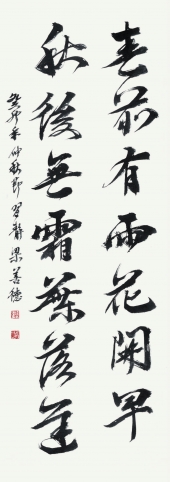 春前有雨花開早
秋後無霜葉落遲
癸卯年仲秋節習静梁善德